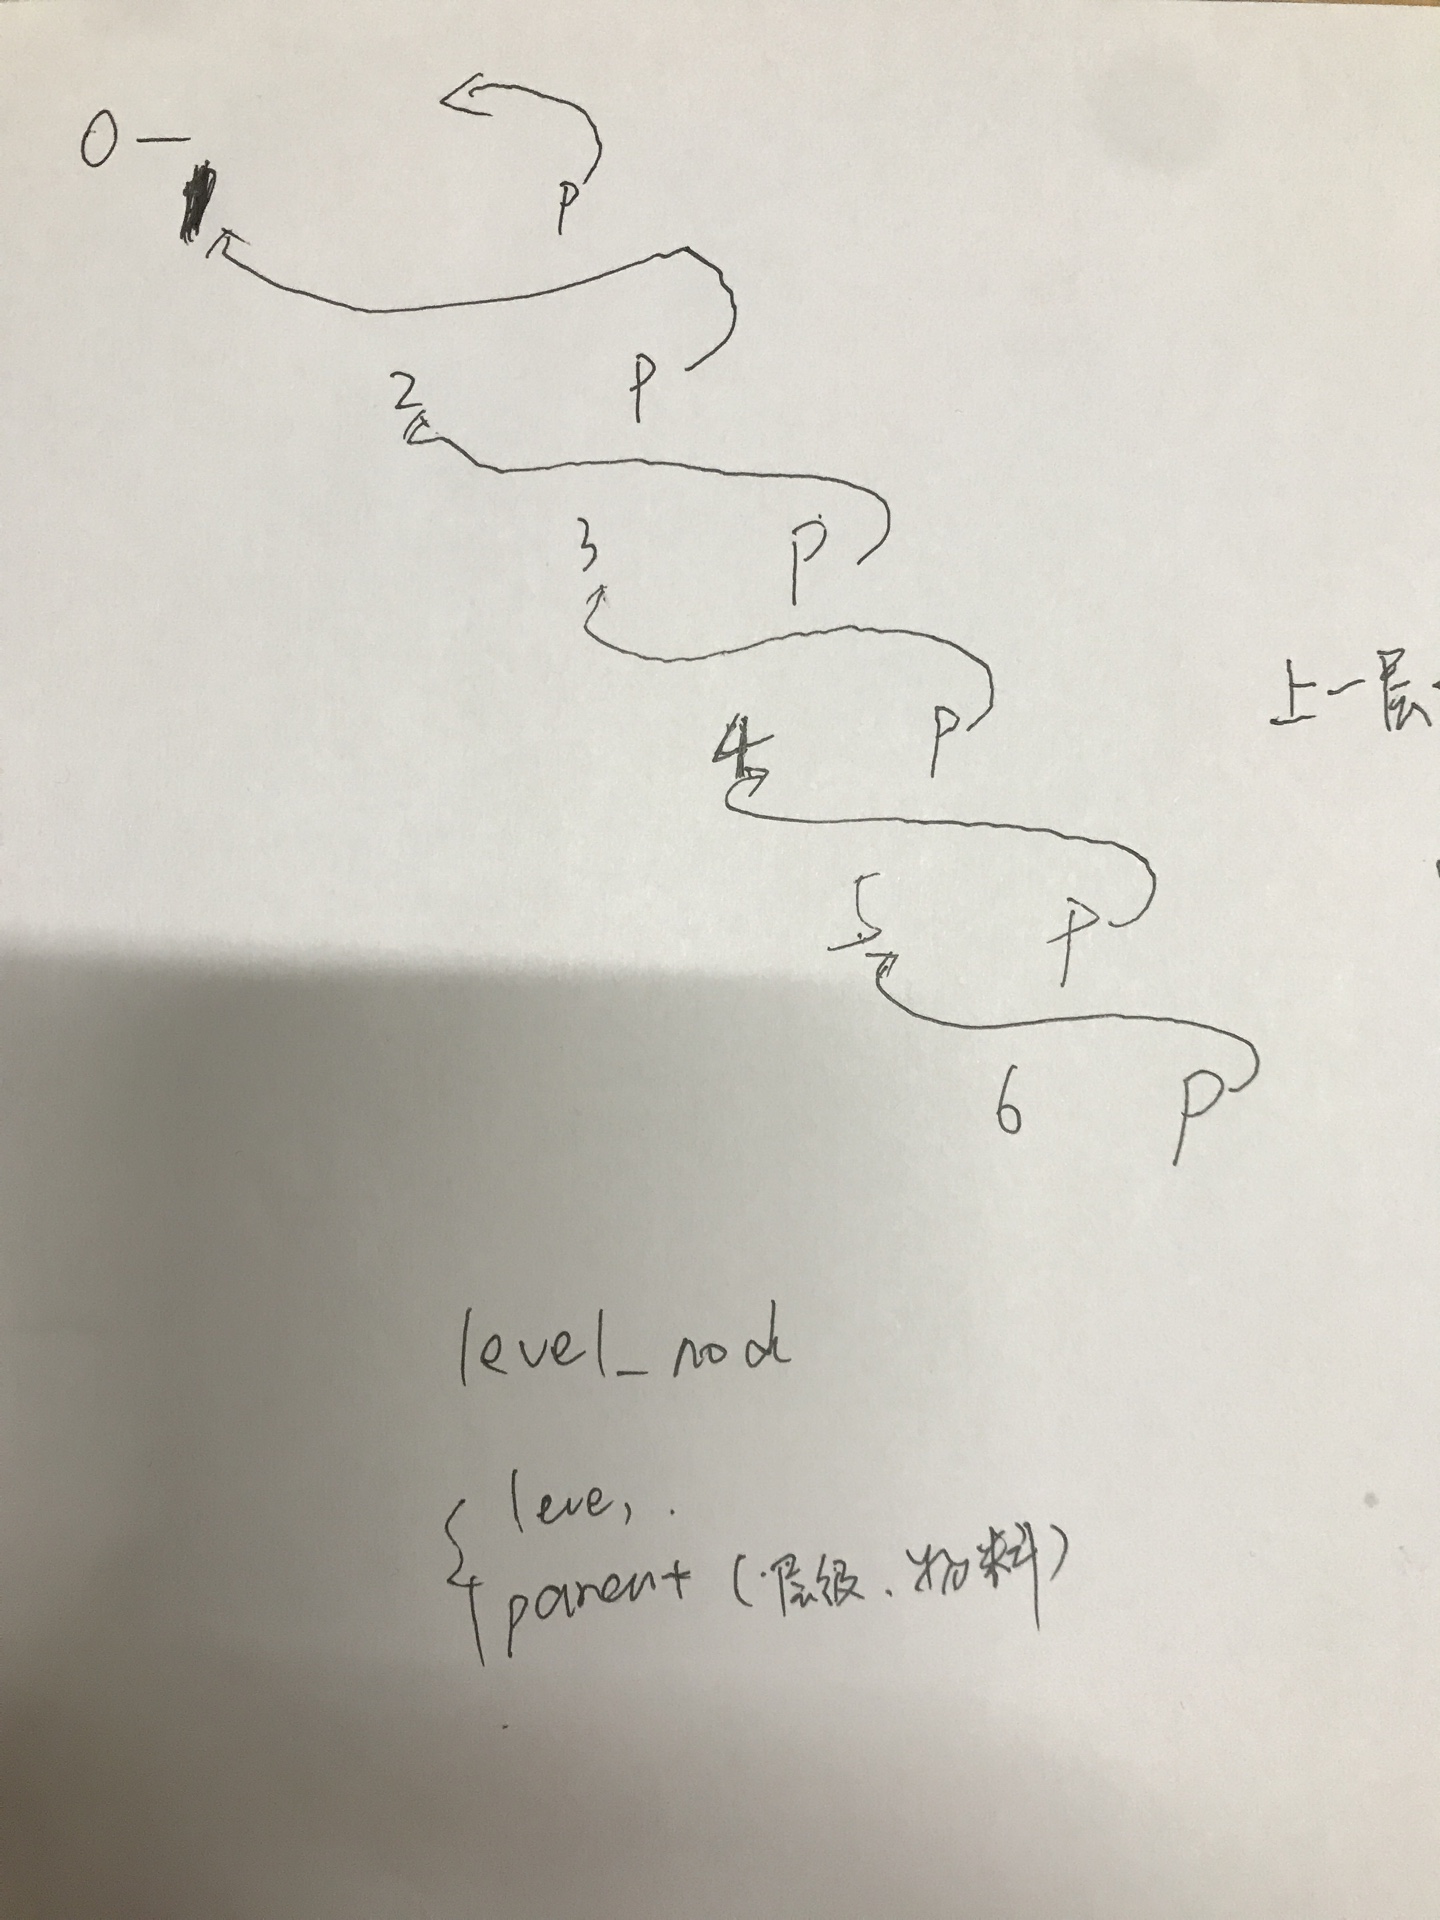 0 —
1 P
2 P
3 P
4 P
上一层
5 P
6 P
level_nod
{ leve, .
parent (层级、物料)